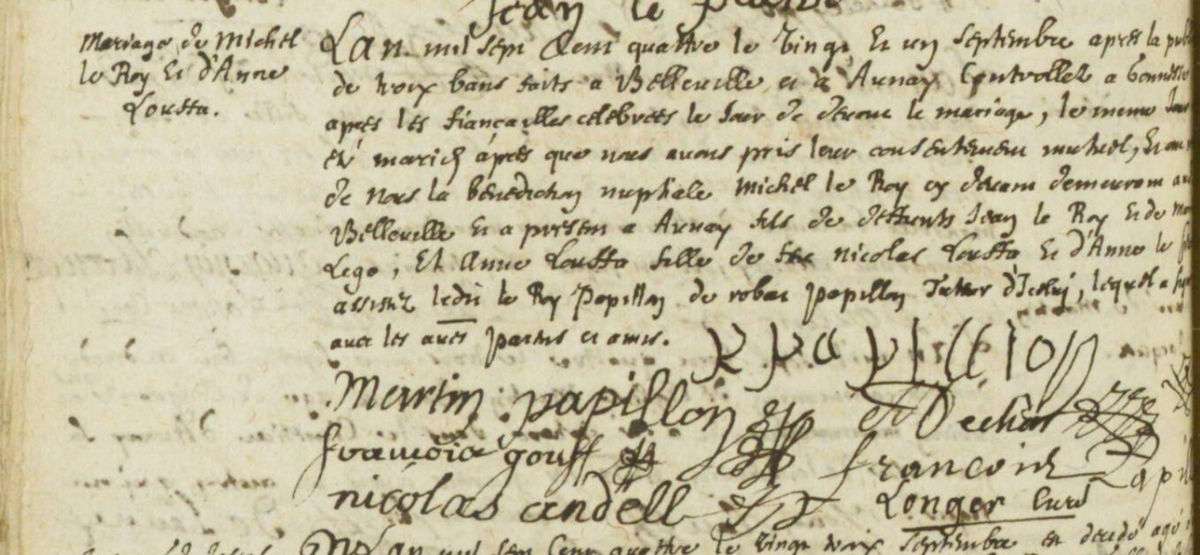 Jean le
Mariage de Michel
le Roy Et d'Anne
Loutta.
Lan mil sept Cent quattre le Vingt Et un Septembre apres la
de trois bans faits a Belleville et a Aunay Controllez a
apres les fiancailles celebrées le Jour de devant le mariage, le meme Jour
été mariez áprés que nous avons pris leur consentement mutuel, Et ont
de nous la bénediction nuptiale Michel le Roy cy devant demeurant a
Belleville Et a present a Aunay fils de deffunts Jean le Roy Et de
Lego, Et Anne Loutta fille de feu nicolas Loutta Et d'Anne le
assisté ledit le Roy Papillon de robert papillon Tuteur d'Icelui, lequel a
avec les autres parens et amis.
R papillon
Martin papillon
francois gouff
francois Papi
nicolas andell
Longer Curé
Lan mil sept Cent quattre le Vingt trois Septembre est decedé agé